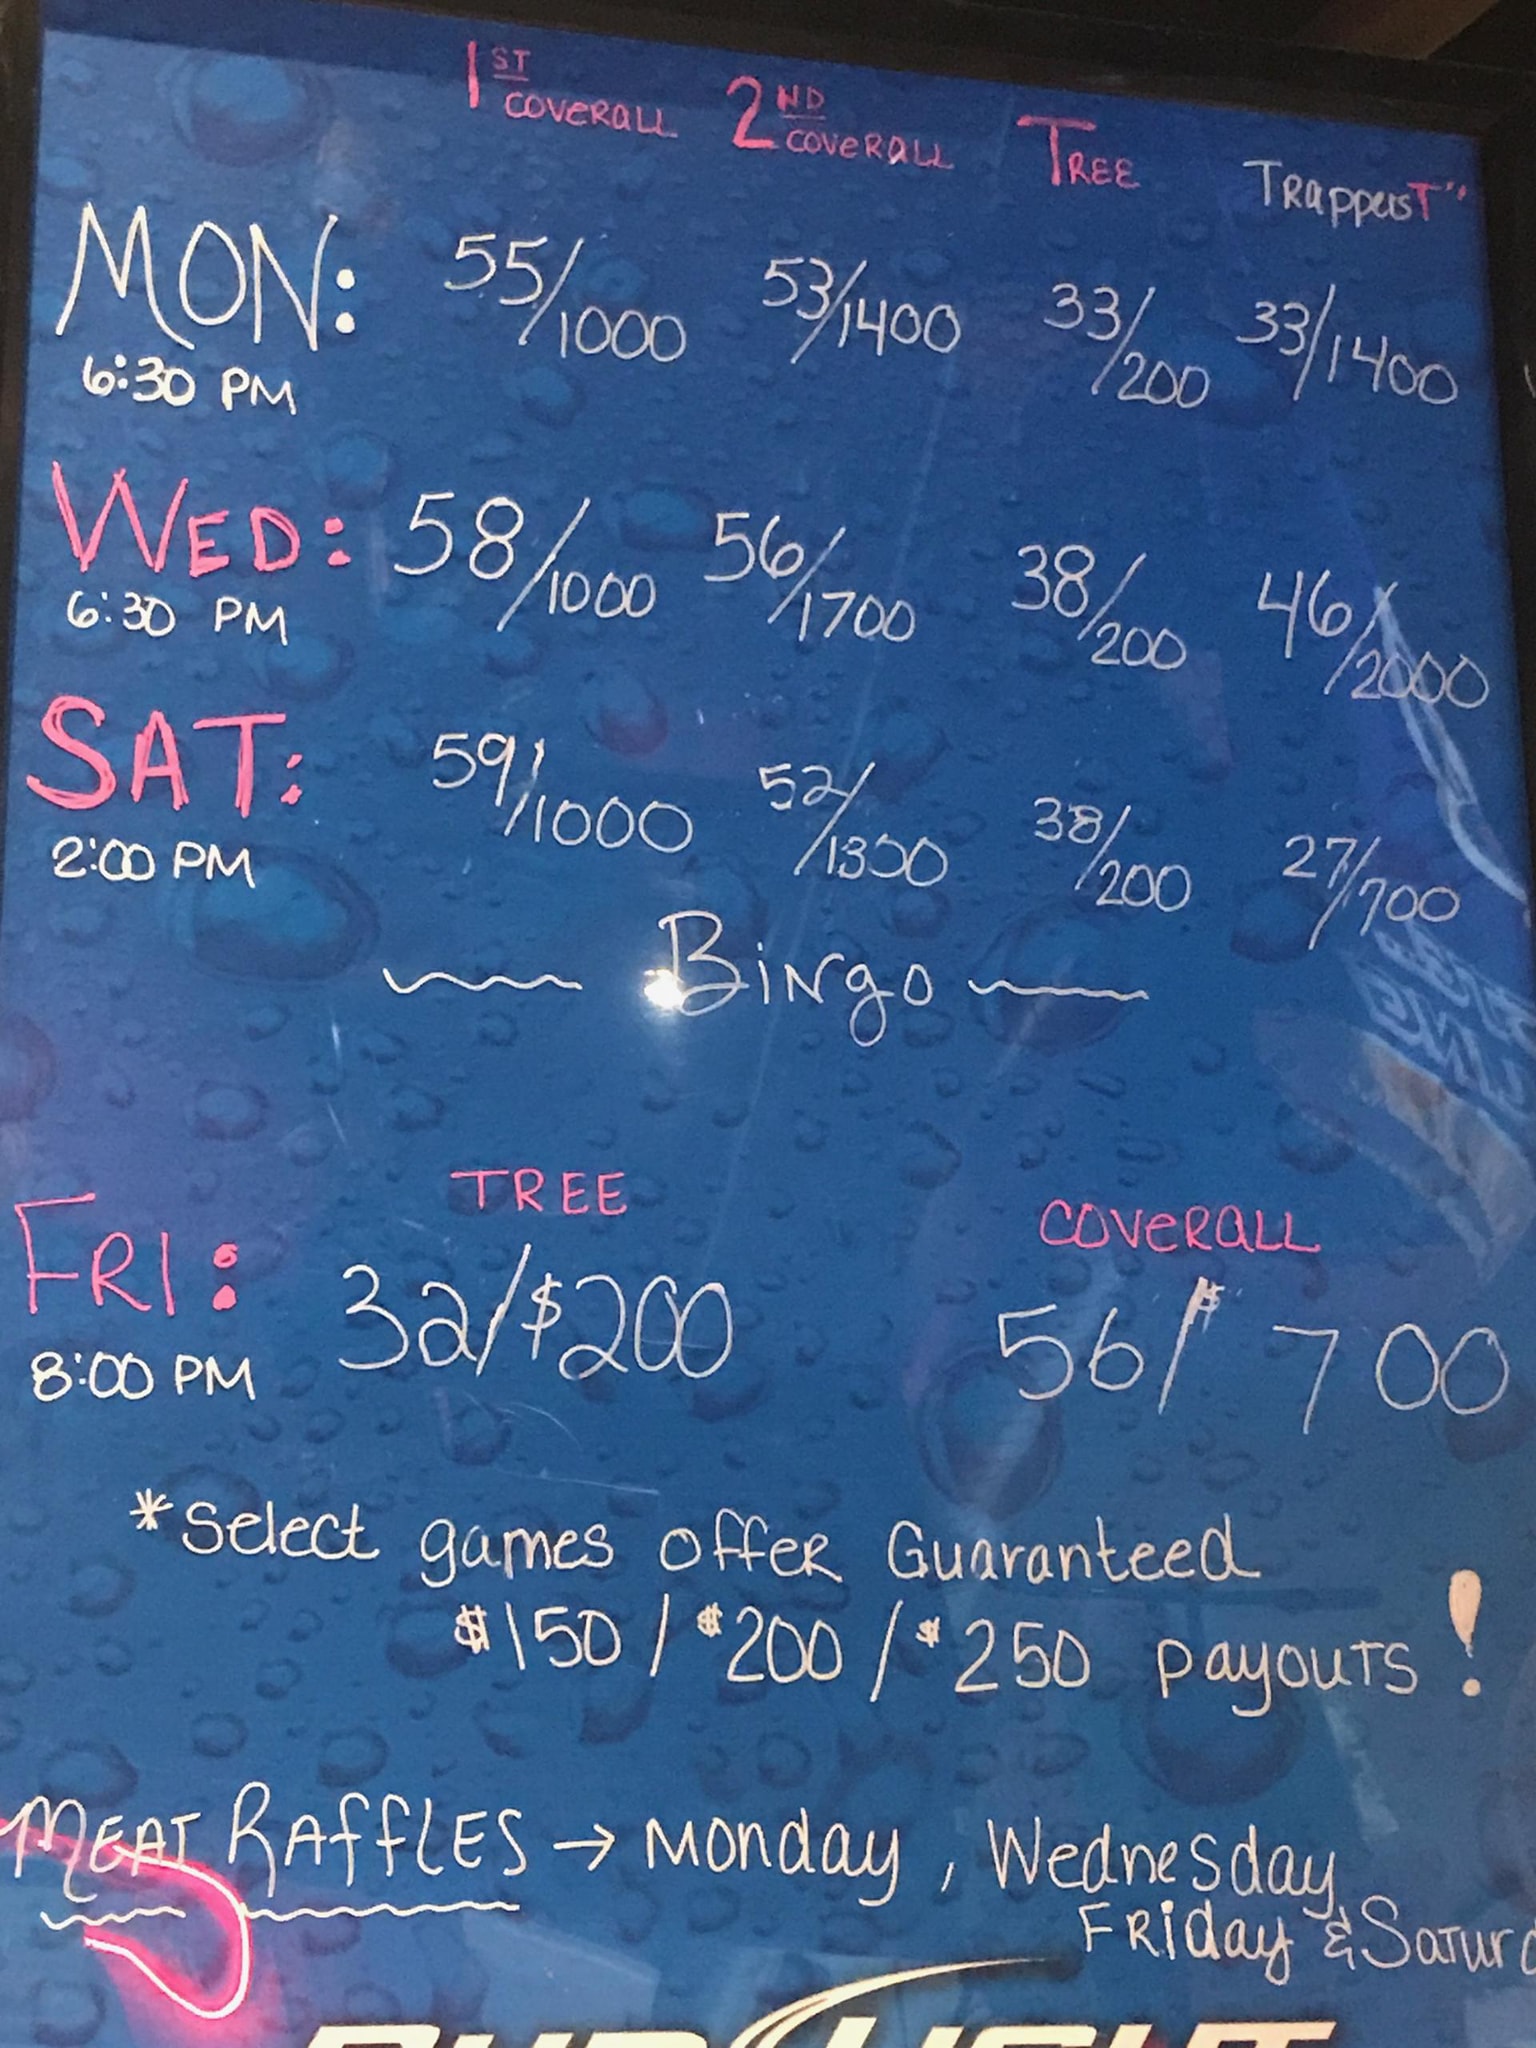 1ST COVERALL 2ND COVERALL TREE TRappers T"
MON: 55/1000 53/1400 33/200 33/1400
6:30 PM
WED: 58/1000 56/1700 38/200 46/2000
6:30 PM
SAT: 59/1000 52/1300 38/200 27/700
2:00 PM
Bingo
TREE COVERALL
FRI: 32/$200 56/$700
8:00 PM
*Select games offer Guaranteed
$150 / $200 / $250 payouts!
MEAT RAffLES → Monday, Wednesday
Friday & Saturd
BUD LIGHT